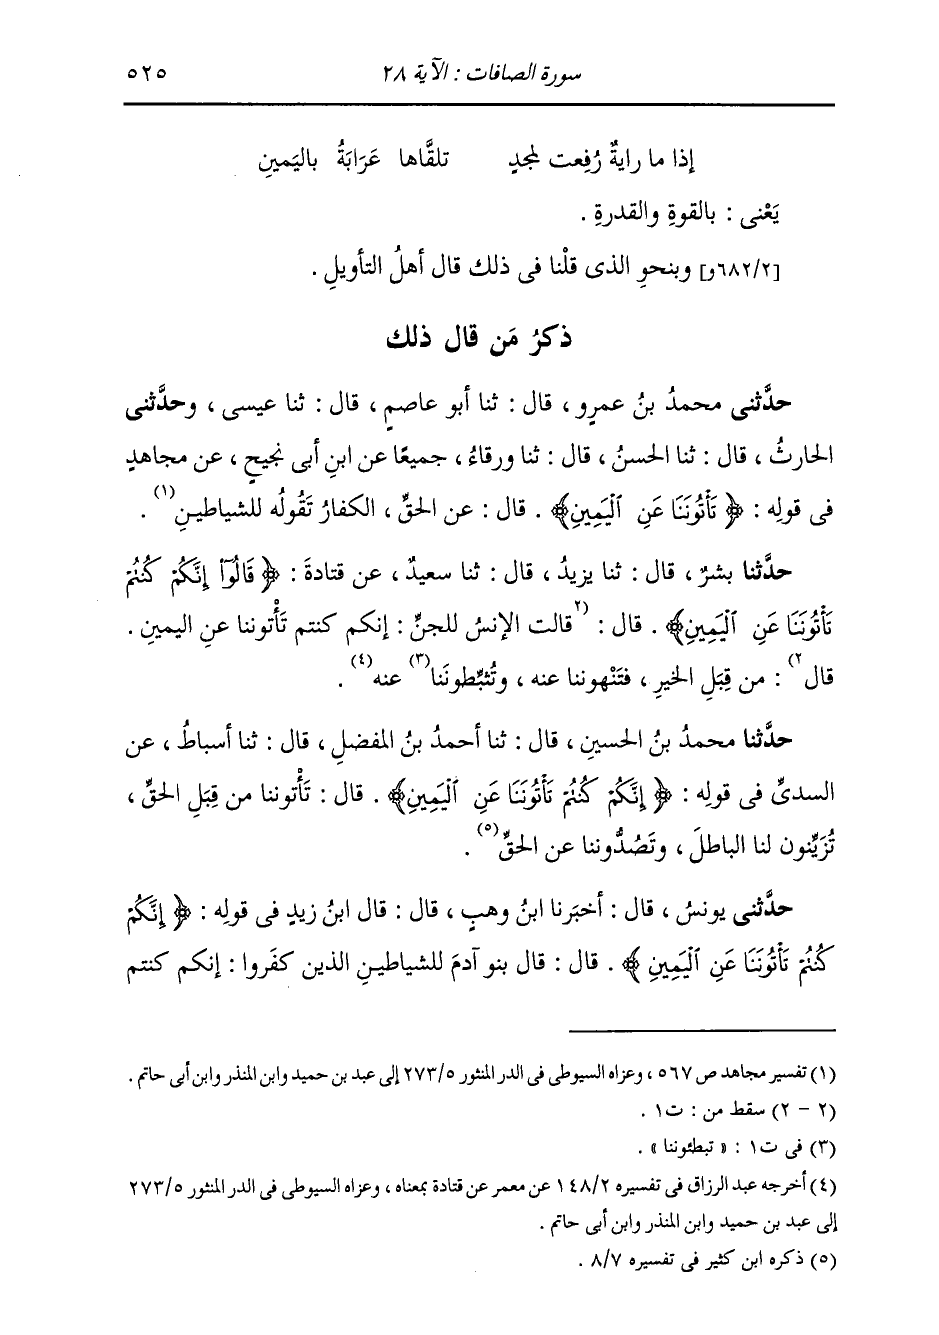 سورة الصافات : الآية ٢٨ ٥٢٥
إذا ما رايةٌ رُفِعت لمجدٍ تلقَّاها عَرَابَةُ باليَمينِ
يَعْنى : بالقوةِ والقدرةِ .
[٦٨٢/٢و] وبنحوِ الذى قلْنا فى ذلك قال أهلُ التأويلِ .
ذكرُ مَن قال ذلك
حدَّثنى محمدُ بنُ عمرٍو ، قال : ثنا أبو عاصمٍ ، قال : ثنا عيسى ، وحدَّثنى
الحارثُ ، قال : ثنا الحسنُ ، قال : ثنا ورقاءُ ، جميعًا عن ابنِ أبى نجيحٍ ، عن مجاهدٍ
فى قولِه : ﴿ تَأْتُونَنَا عَنِ ٱلْيَمِينِ﴾ . قال : عن الحقِّ ، الكفارُ تَقُولُه للشياطينِ(١) .
حدَّثنا بشرٌ ، قال : ثنا يزيدُ ، قال : ثنا سعيدٌ ، عن قتادةَ : ﴿ قَالُوٓاْ إِنَّكُمْ كُنتُمْ
تَأْتُونَنَا عَنِ ٱلْيَمِينِ﴾ . قال : (٢قالت الإنسُ للجنِّ : إنكم كنتم تَأْتوننا عنِ اليمينِ .
قال٢) : من قِبَلِ الخيرِ ، فتَنْهوننا عنه ، وتُثبِّطونَنا(٣) عنه(٤) .
حدَّثنا محمدُ بنُ الحسينِ ، قال : ثنا أحمدُ بنُ المفضلِ ، قال : ثنا أسباطُ ، عن
السدىِّ فى قولِه : ﴿ إِنَّكُمْ كُنتُمْ تَأْتُونَنَا عَنِ ٱلْيَمِينِ﴾ . قال : تَأْتوننا من قِبَلِ الحقِّ ،
تُزَيِّنون لنا الباطلَ ، وتَصُدُّوننا عن الحقِّ(٥) .
حدَّثنى يونسُ ، قال : أخبَرنا ابنُ وهبٍ ، قال : قال ابنُ زيدٍ فى قولِه : ﴿ إِنَّكُمْ
كُنتُمْ تَأْتُونَنَا عَنِ ٱلْيَمِينِ ﴾ . قال : قال بنو آدمَ للشياطينِ الذين كفَروا : إنكم كنتم
(١) تفسير مجاهد ص ٥٦٧ ، وعزاه السيوطى فى الدر المنثور ٢٧٣/٥ إلى عبد بن حميد وابن المنذر وابن أبى حاتم .
(٢ - ٢) سقط من : ت١ .
(٣) فى ت١ : « تبطئوننا » .
(٤) أخرجه عبد الرزاق فى تفسيره ١٤٨/٢ عن معمر عن قتادة بمعناه ، وعزاه السيوطى فى الدر المنثور ٢٧٣/٥
إلى عبد بن حميد وابن المنذر وابن أبى حاتم .
(٥) ذكره ابن كثير فى تفسيره ٨/٧ .